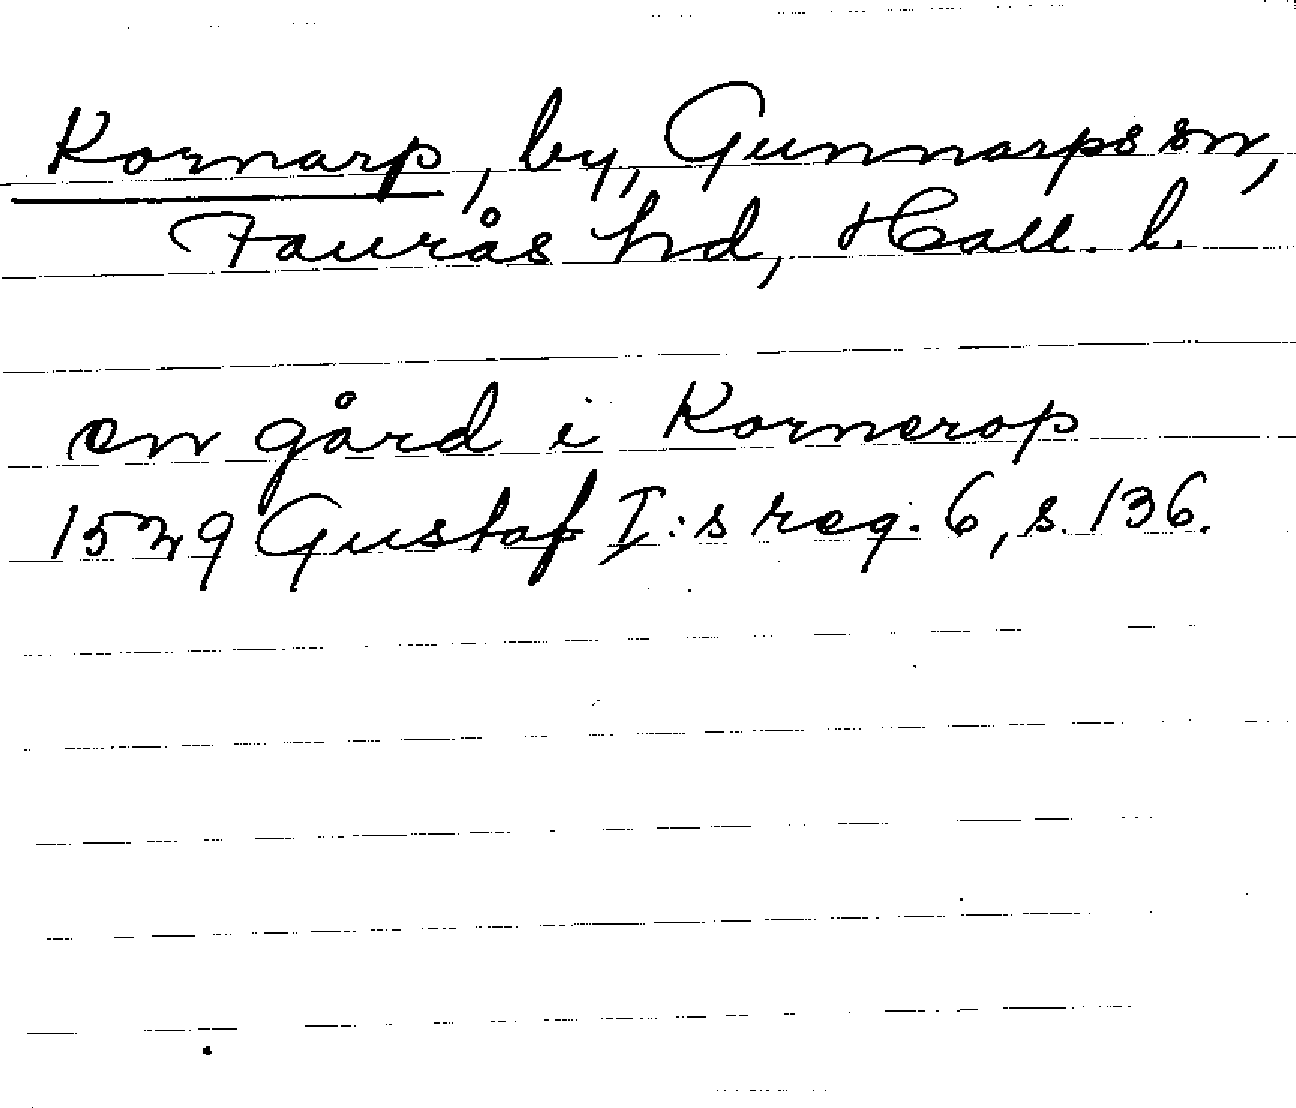 Kornarp, by, Gunnarps sn,
Faurås hd, Hall. l.
en gård i Kornerop
1529 Gustaf I:s reg. 6, s. 136.